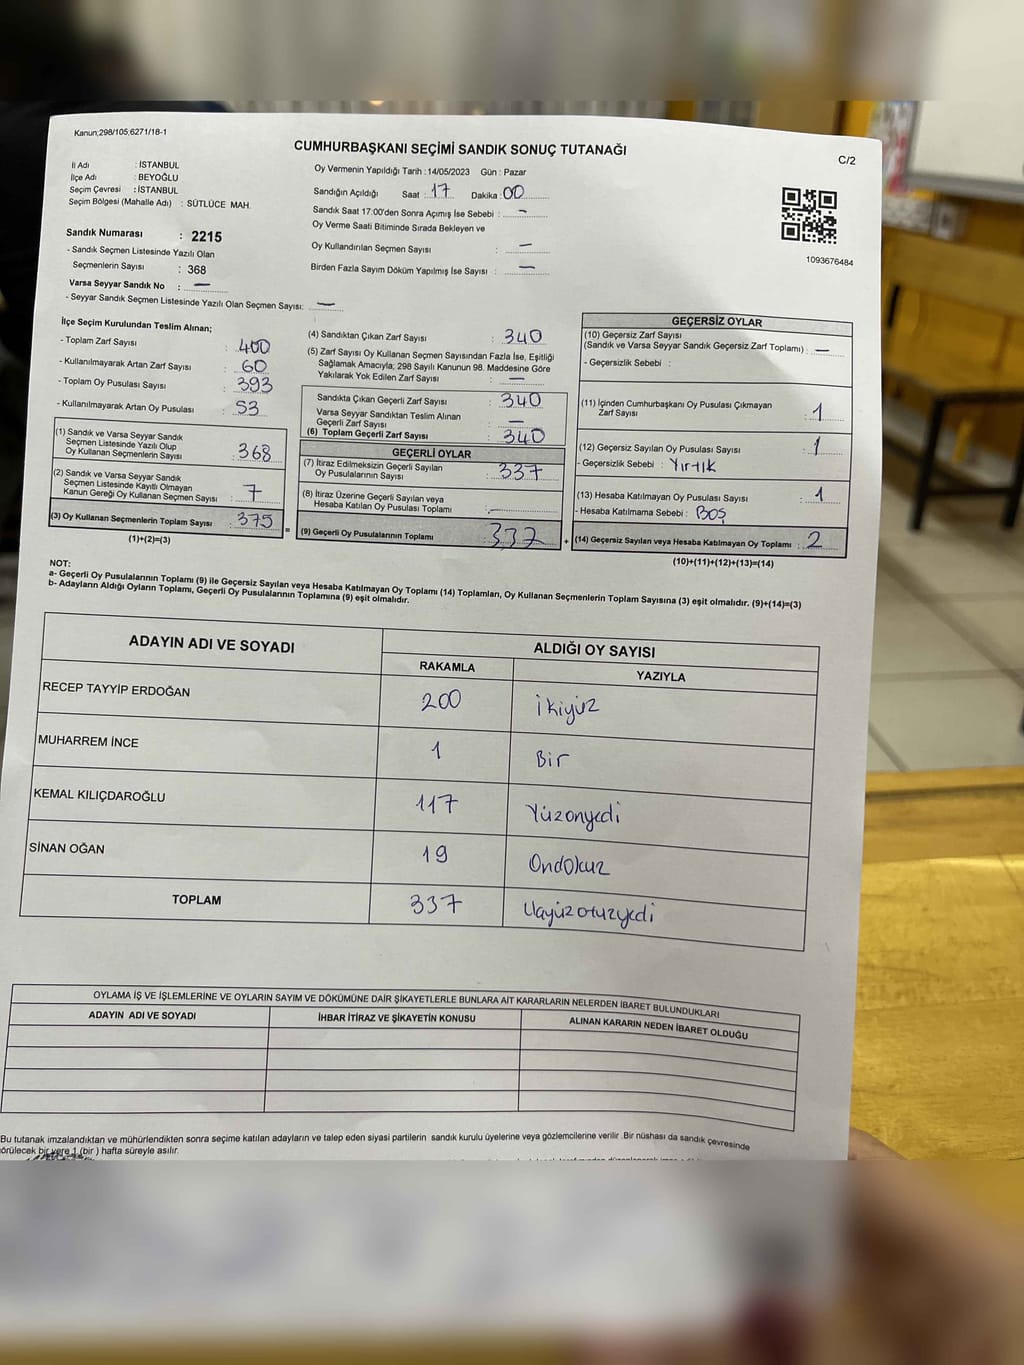 Kanun;298/105;6271/18-1
CUMHURBAŞKANI SEÇİMİ SANDIK SONUÇ TUTANAĞI
C/2
İl Adı : İSTANBUL
İlçe Adı : BEYOĞLU
Seçim Çevresi : İSTANBUL
Seçim Bölgesi (Mahalle Adı) : SÜTLÜCE MAH.
Sandık Numarası : 2215
- Sandık Seçmen Listesinde Yazılı Olan
Seçmenlerin Sayısı : 368
Varsa Seyyar Sandık No : —
- Seyyar Sandık Seçmen Listesinde Yazılı Olan Seçmen Sayısı: —
Oy Vermenin Yapıldığı Tarih : 14/05/2023 Gün : Pazar
Sandığın Açıldığı Saat : 17 Dakika : 00
Sandık Saat 17:00'den Sonra Açımış İse Sebebi : —
Oy Verme Saati Bitiminde Sırada Bekleyen ve
Oy Kullandırılan Seçmen Sayısı : —
Birden Fazla Sayım Döküm Yapılmış İse Sayısı : —
1093676484
İlçe Seçim Kurulundan Teslim Alınan;
- Toplam Zarf Sayısı : 400
- Kullanılmayarak Artan Zarf Sayısı : 60
- Toplam Oy Pusulası Sayısı : 393
- Kullanılmayarak Artan Oy Pusulası : 53
(1) Sandık ve Varsa Seyyar Sandık
Seçmen Listesinde Yazılı Olup
Oy Kullanan Seçmenlerin Sayısı : 368
(2) Sandık ve Varsa Seyyar Sandık
Seçmen Listesinde Kayıtlı Olmayan
Kanun Gereği Oy Kullanan Seçmen Sayısı : 7
(3) Oy Kullanan Seçmenlerin Toplam Sayısı : 375
(1)+(2)=(3)
(4) Sandıktan Çıkan Zarf Sayısı : 340
(5) Zarf Sayısı Oy Kullanan Seçmen Sayısından Fazla İse, Eşitliği
Sağlamak Amacıyla; 298 Sayılı Kanunun 98. Maddesine Göre
Yakılarak Yok Edilen Zarf Sayısı : —
Sandıkta Çıkan Geçerli Zarf Sayısı : 340
Varsa Seyyar Sandıktan Teslim Alınan
Geçerli Zarf Sayısı : —
(6) Toplam Geçerli Zarf Sayısı : 340
GEÇERLİ OYLAR
(7) İtiraz Edilmeksizin Geçerli Sayılan
Oy Pusulalarının Sayısı : 337
(8) İtiraz Üzerine Geçerli Sayılan veya
Hesaba Katılan Oy Pusulası Toplamı : —
= (9) Geçerli Oy Pusulalarının Toplamı 337
GEÇERSİZ OYLAR
(10) Geçersiz Zarf Sayısı
(Sandık ve Varsa Seyyar Sandık Geçersiz Zarf Toplamı) : —
- Geçersizlik Sebebi :
(11) İçinden Cumhurbaşkanı Oy Pusulası Çıkmayan
Zarf Sayısı : 1
(12) Geçersiz Sayılan Oy Pusulası Sayısı : 1
- Geçersizlik Sebebi : Yırtık
(13) Hesaba Katılmayan Oy Pusulası Sayısı : 1
- Hesaba Katılmama Sebebi : BOŞ
+ (14) Geçersiz Sayılan veya Hesaba Katılmayan Oy Toplamı : 2
(10)+(11)+(12)+(13)=(14)
NOT:
a- Geçerli Oy Pusulalarının Toplamı (9) ile Geçersiz Sayılan veya Hesaba Katılmayan Oy Toplamı (14) Toplamları, Oy Kullanan Seçmenlerin Toplam Sayısına (3) eşit olmalıdır. (9)+(14)=(3)
b- Adayların Aldığı Oyların Toplamı, Geçerli Oy Pusulalarının Toplamına (9) eşit olmalıdır.
ADAYIN ADI VE SOYADI ALDIĞI OY SAYISI
RAKAMLA YAZIYLA
RECEP TAYYİP ERDOĞAN 200 İkiyüz
MUHARREM İNCE 1 Bir
KEMAL KILIÇDAROĞLU 117 Yüzonyedi
SİNAN OĞAN 19 Ondokuz
TOPLAM 337 Üçyüzotuzyedi
OYLAMA İŞ VE İŞLEMLERİNE VE OYLARIN SAYIM VE DÖKÜMÜNE DAİR ŞİKAYETLERLE BUNLARA AİT KARARLARIN NELERDEN İBARET BULUNDUKLARI
ADAYIN ADI VE SOYADI İHBAR İTİRAZ VE ŞİKAYETİN KONUSU ALINAN KARARIN NEDEN İBARET OLDUĞU
Bu tutanak imzalandıktan ve mühürlendikten sonra seçime katılan adayların ve talep eden siyasi partilerin sandık kurulu üyelerine veya gözlemcilerine verilir. Bir nüshası da sandık çevresinde
örülecek bir yere 1 (bir ) hafta süreyle asılır.